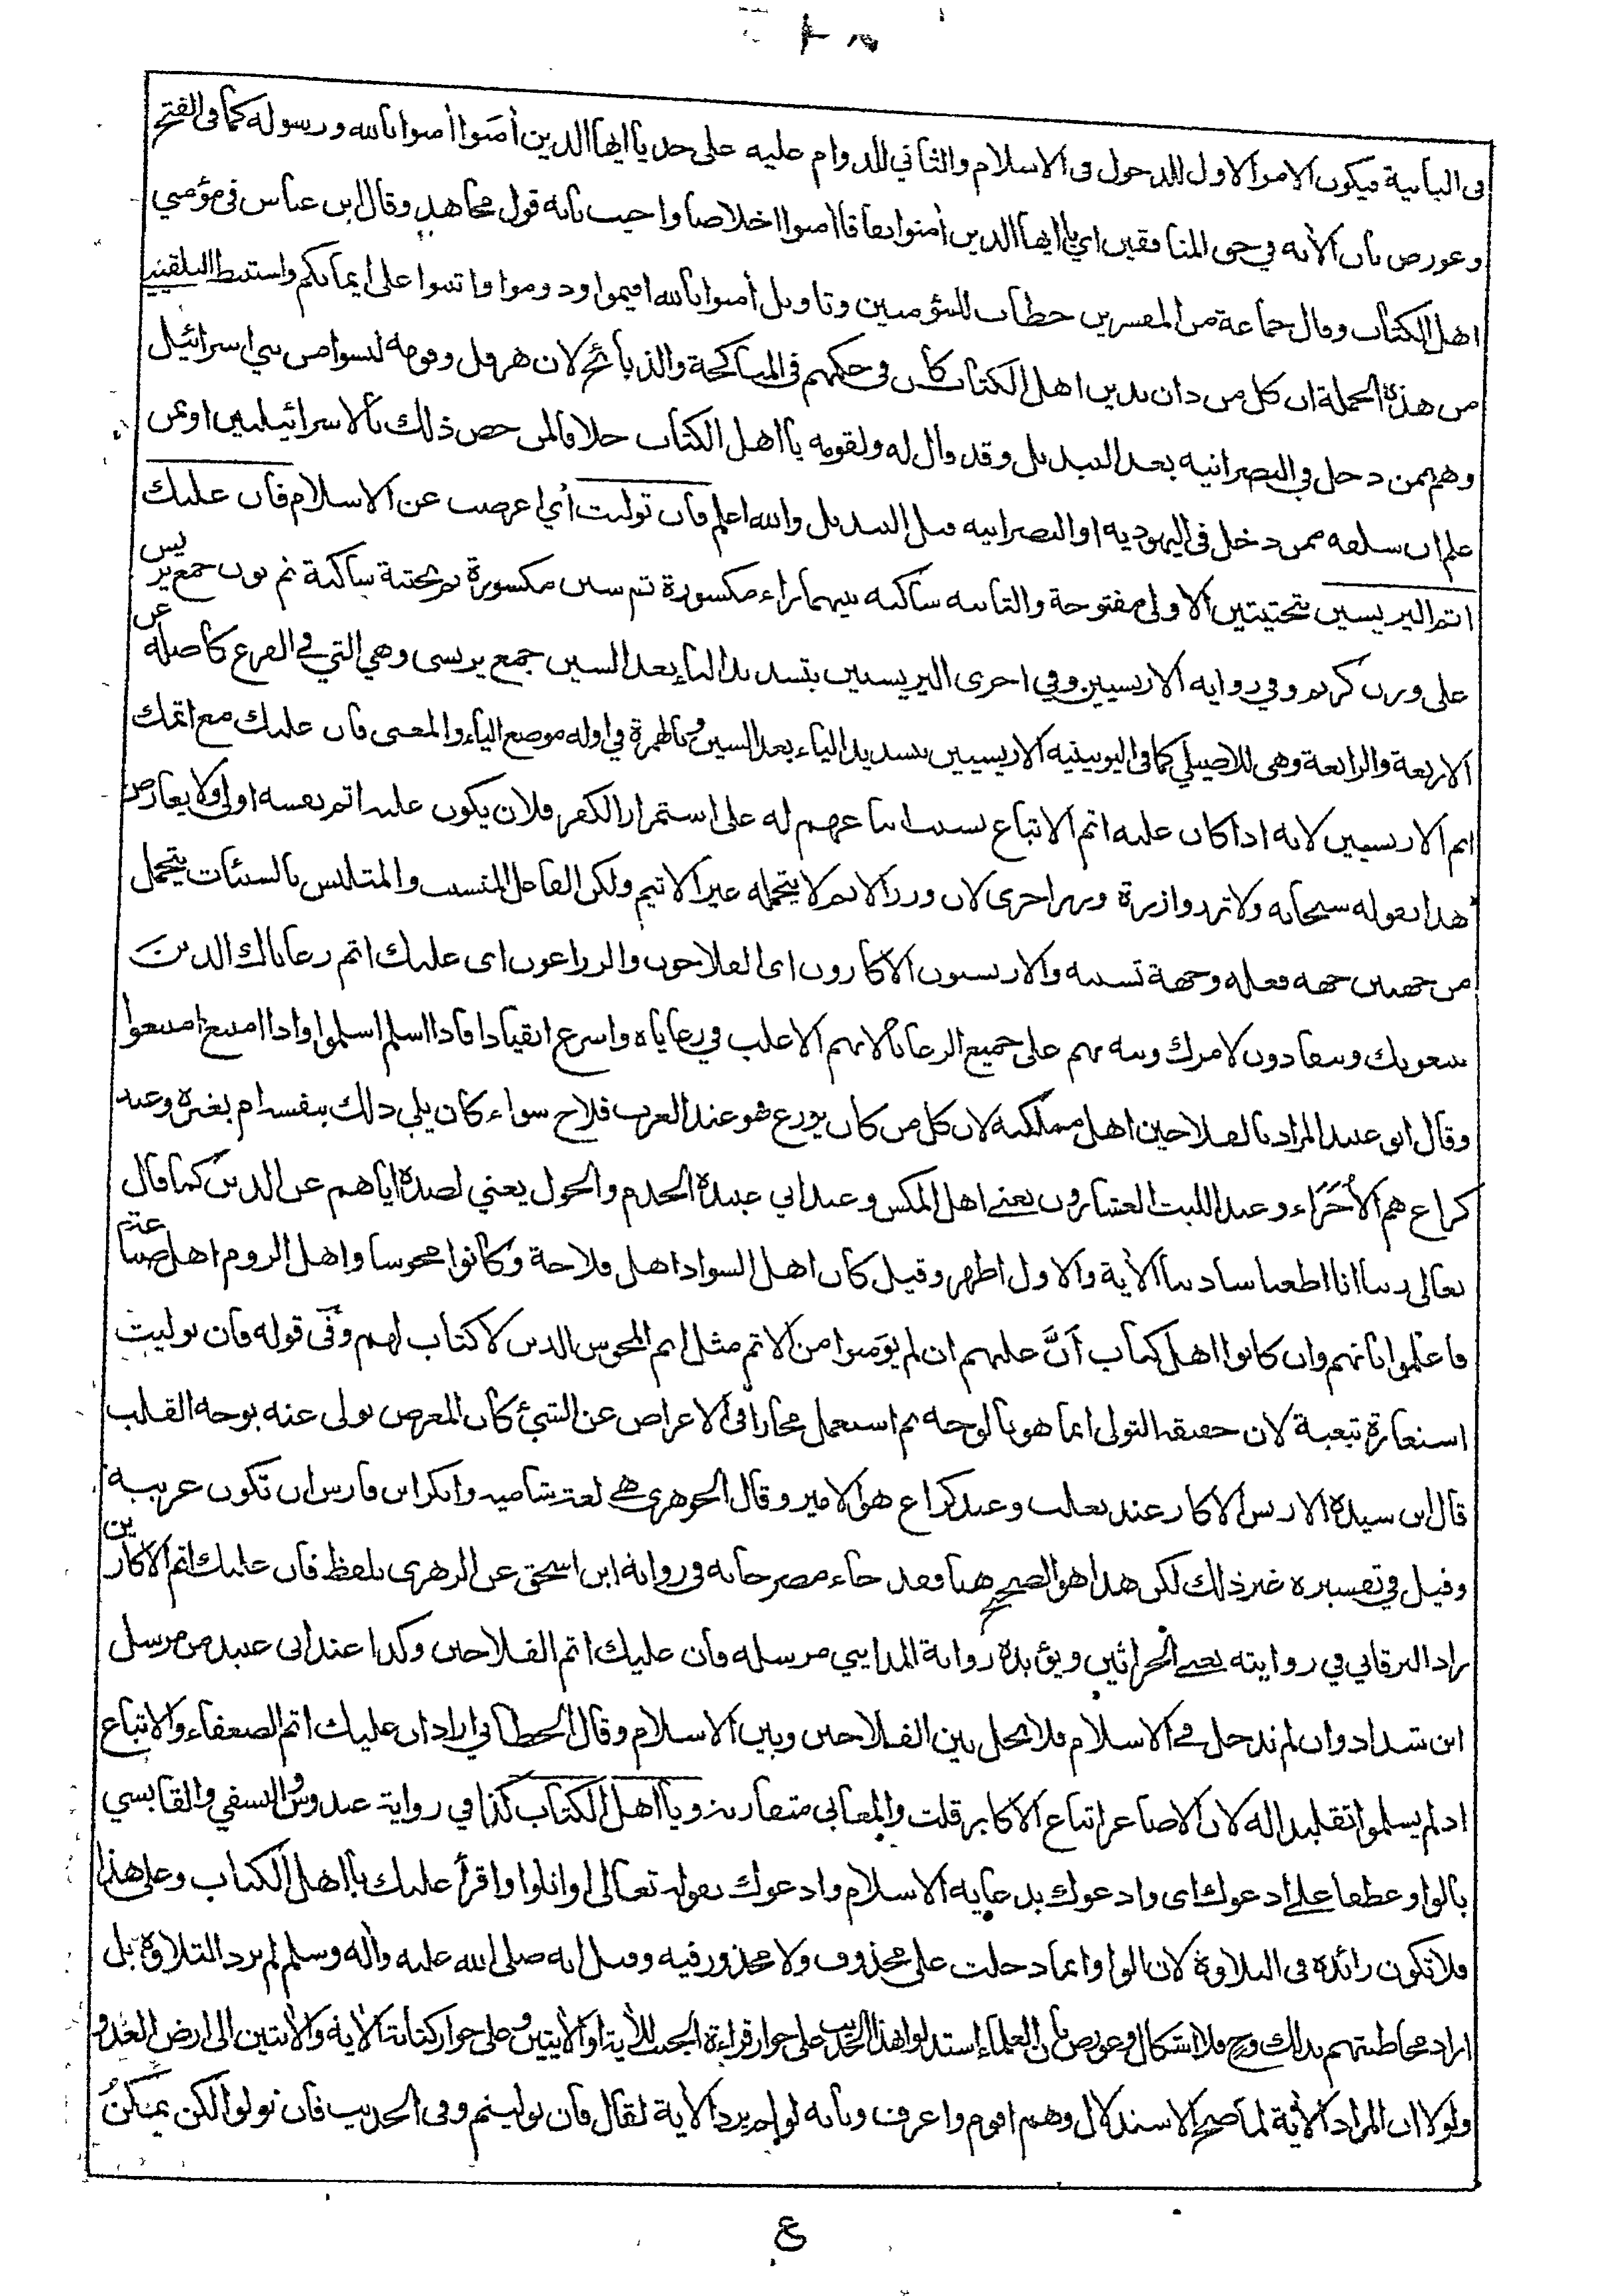 في الثانية فيكون الامر الاول للدخول في الاسلام والثاني للدوام عليه على حد يا ايها الذين أمنوا أمنوا بالله ورسوله كما في الفتح
وعورض بان الأيه في حق المنافقين اي يا ايها الذين أمنوا نفاقا أمنوا اخلاصا واجيب بانه قول مجاهد وقال ابن عباس في مؤمني
اهل الكتاب وقال جماعة من المفسرين خطاب للمؤمنين وتاويل أمنوا بالله اقيموا ودوموا واثبتوا على ايمانكم واستنبط البلقيني
من هذه الجملة ان كل من دان بدين اهل الكتاب كان في حكمهم في المناكحة والذبائح لان هرقل وقومه ليسوا من بني اسرائيل
وهم ممن دخل في النصرانيه بعد التبديل وقد قال له ولقومه يا اهل الكتاب خلافا لمن خص ذلك بالاسرائيليين او بمن
علم ان سلفه ممن دخل في اليهوديه او النصرانيه قبل التبديل والله اعلم فان توليت أي اعرضت عن الاسلام فان عليك
اثم اليريسين بتحتيتين الاولى مفتوحة والثانيه ساكنه بينهما راء مكسورة ثم سين مكسورة ثم تحتية ساكنة ثم نون جمع يريس
على وزن كريم وفي روايه الاريسين وفي اخرى اليريسيين بتشديد الياء بعد السين جمع يريسي وهي التي في الفرع كاصله عن
الاربعة والرابعة وهي للاصيلي كما في اليونينيه الاريسيين بتشديد الياء بعد السين وبالهمزة في اوله موضع الياء والمعنى فان عليك مع اثمك
اثم الاريسيين لانه اذا كان عليه اثم الاتباع بسبب اتباعهم له على استمرار الكفر فلان يكون عليه اثم نفسه اولى ولا يعارض
هذا بقوله سبحانه ولا تزر وازرة وزر اخرى لان وزر الاثم لا يتحمله غير الاثيم ولكن الفاعل المتسبب والمتلبس بالسيئات يتحمل
من جهتين جهه فعله وجهة تسببه والاريسيون الاكارون اي الفلاحون والزراعون اي عليك اثم رعاياك الذين
يتبعونك وينقادون لامرك ونبه بهم على جميع الرعايا لانهم الاغلب في رعاياه واسرع انقيادا فاذا اسلم اسلموا واذا امتنع امتنعوا
وقال ابو عبيد المراد بالفلاحين اهل مملكته لان كل من كان يزرع فهو عند العرب فلاح سواء كان يلي ذلك بنفسه ام بغيره وعند
كراع هم الأجراء وعند الليث العشارون يعنى اهل المكس وعند ابي عبيدة الخدم والخول يعني لصده اياهم عن الدين كما قال
تعالى ربنا انا اطعنا سادتنا الأية والاول اظهر وقيل كان اهل السواد اهل فلاحة وكانوا مجوسا واهل الروم اهل صناعة
فاعلموا بانهم وان كانوا اهل كتاب أنّ عليهم ان لم يؤمنوا من الاثم مثل اثم المجوس الذين لا كتاب لهم وفي قوله فان توليت
استعارة تبعية لان حقيقة التولى انما هو بالوجه ثم استعمل مجازا في الاعراض عن الشئ كان المعرض تولى عنه بوجه القلب
قال ابن سيده الاريس الاكار عند ثعلب وعند كراع هو الامير وقال الجوهرى هي لغة شاميه وانكر ابن فارس ان تكون عربيه
وقيل في تفسيره غير ذلك لكن هذا هو الصحيح هنا فقد جاء مصرحا به في رواية ابن اسحق عن الزهرى بلفظ فان عليك اثم الاكارين
زاد البرقاني في روايته يعنى الحراثين ويؤيده رواية المدايني مرسله فان عليك اثم الفلاحين وكذا عند ابي عبيد من مرسل
ابن شداد وان لم تدخل في الاسلام فلا تحل بين الفلاحين وبين الاسلام وقال الخطابي اراد ان عليك اثم الضعفاء والاتباع
اذ لم يسلموا تقليدا له لان الاصاغر اتباع الاكابر قلت والمعاني متقاربة ويا اهل الكتاب كذا في رواية عبدوس والنسفي والقابسي
بالواو عطفا على ادعوك اي وادعوك بدعايه الاسلام وادعوك بقوله تعالى او اتلوا واقرأ عليك يا اهل الكتاب وعلى هذا
فلا تكون زائدة في التلاوة لان الواو انما دخلت على محذوف ولا محذور فيه وقيل انه صلى الله عليه وأله وسلم لم يرد التلاوة بل
اراد مخاطبتهم بذلك وح فلا اشكال وعورض بان العلماء استدلوا بهذا الحديث على جواز قراءة الجنب للأية او الأيتين وعلى جواز كتابة الأية والأيتين الى ارض العدو
ولولا ان المراد الأية لما صح الاستدلال وهم اقوم واعرف وبانه لو لم يرد الأية لقال فان توليتم وفي الحديث فان تولوا لكن يمكن
ع